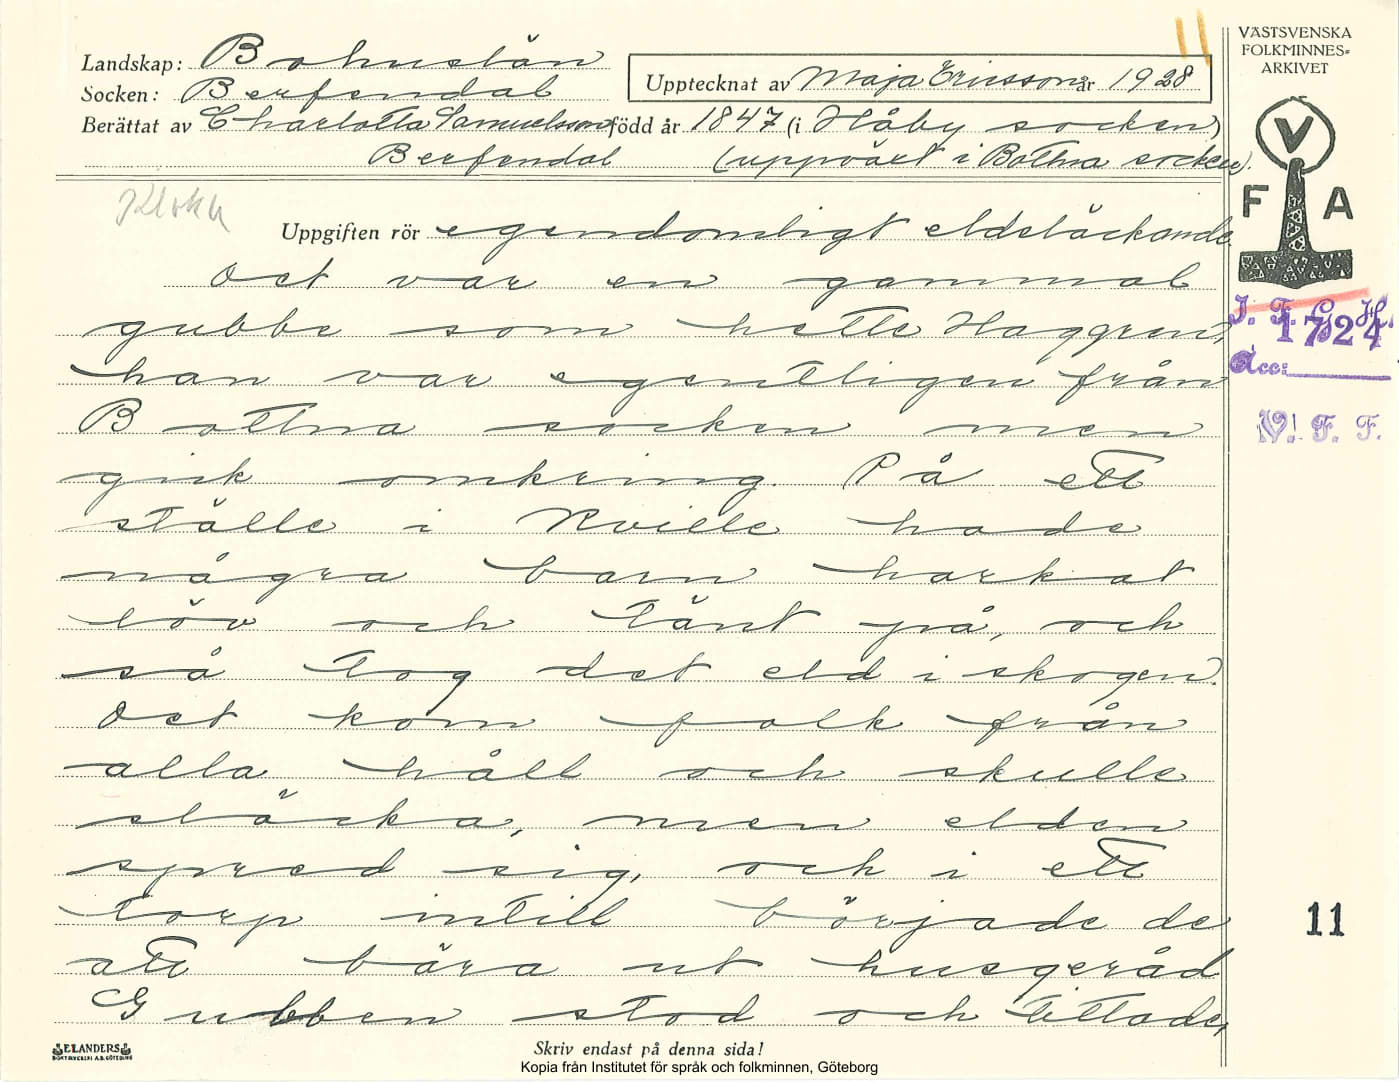 VÄSTSVENSKA
FOLKMINNES=
ARKIVET
Landskap: Bohuslän
Upptecknat av Maja Ericsson år 1928
Socken: Berfendal
Berättat av Charlotta Samuelsson född år 1847 (i Håby socken)
Berfendal (uppväxt i Bottna socken).
V
F A
Kloka
Uppgiften rör egendomligt eldsläckande.
Det var en gammal
gubbe som hette Haggren,
han var egentligen från
Bottna socken men
gick omkring. På ett
ställe i Kville hade
några barn harkat
löv och tänt på, och
så tog det eld i skogen.
Det kom folk från
alla håll och skulle
släcka, men elden
spred sig, och i ett
torp intill började de
att bära ut husgeråd
Gubben stod och tittade,
I. F. G. H.
1724
Acc:
V! F. F.
11
ELANDERS
BOKTRYCKERI A.B. GÖTEBORG
Skriv endast på denna sida!
Kopia från Institutet för språk och folkminnen, Göteborg